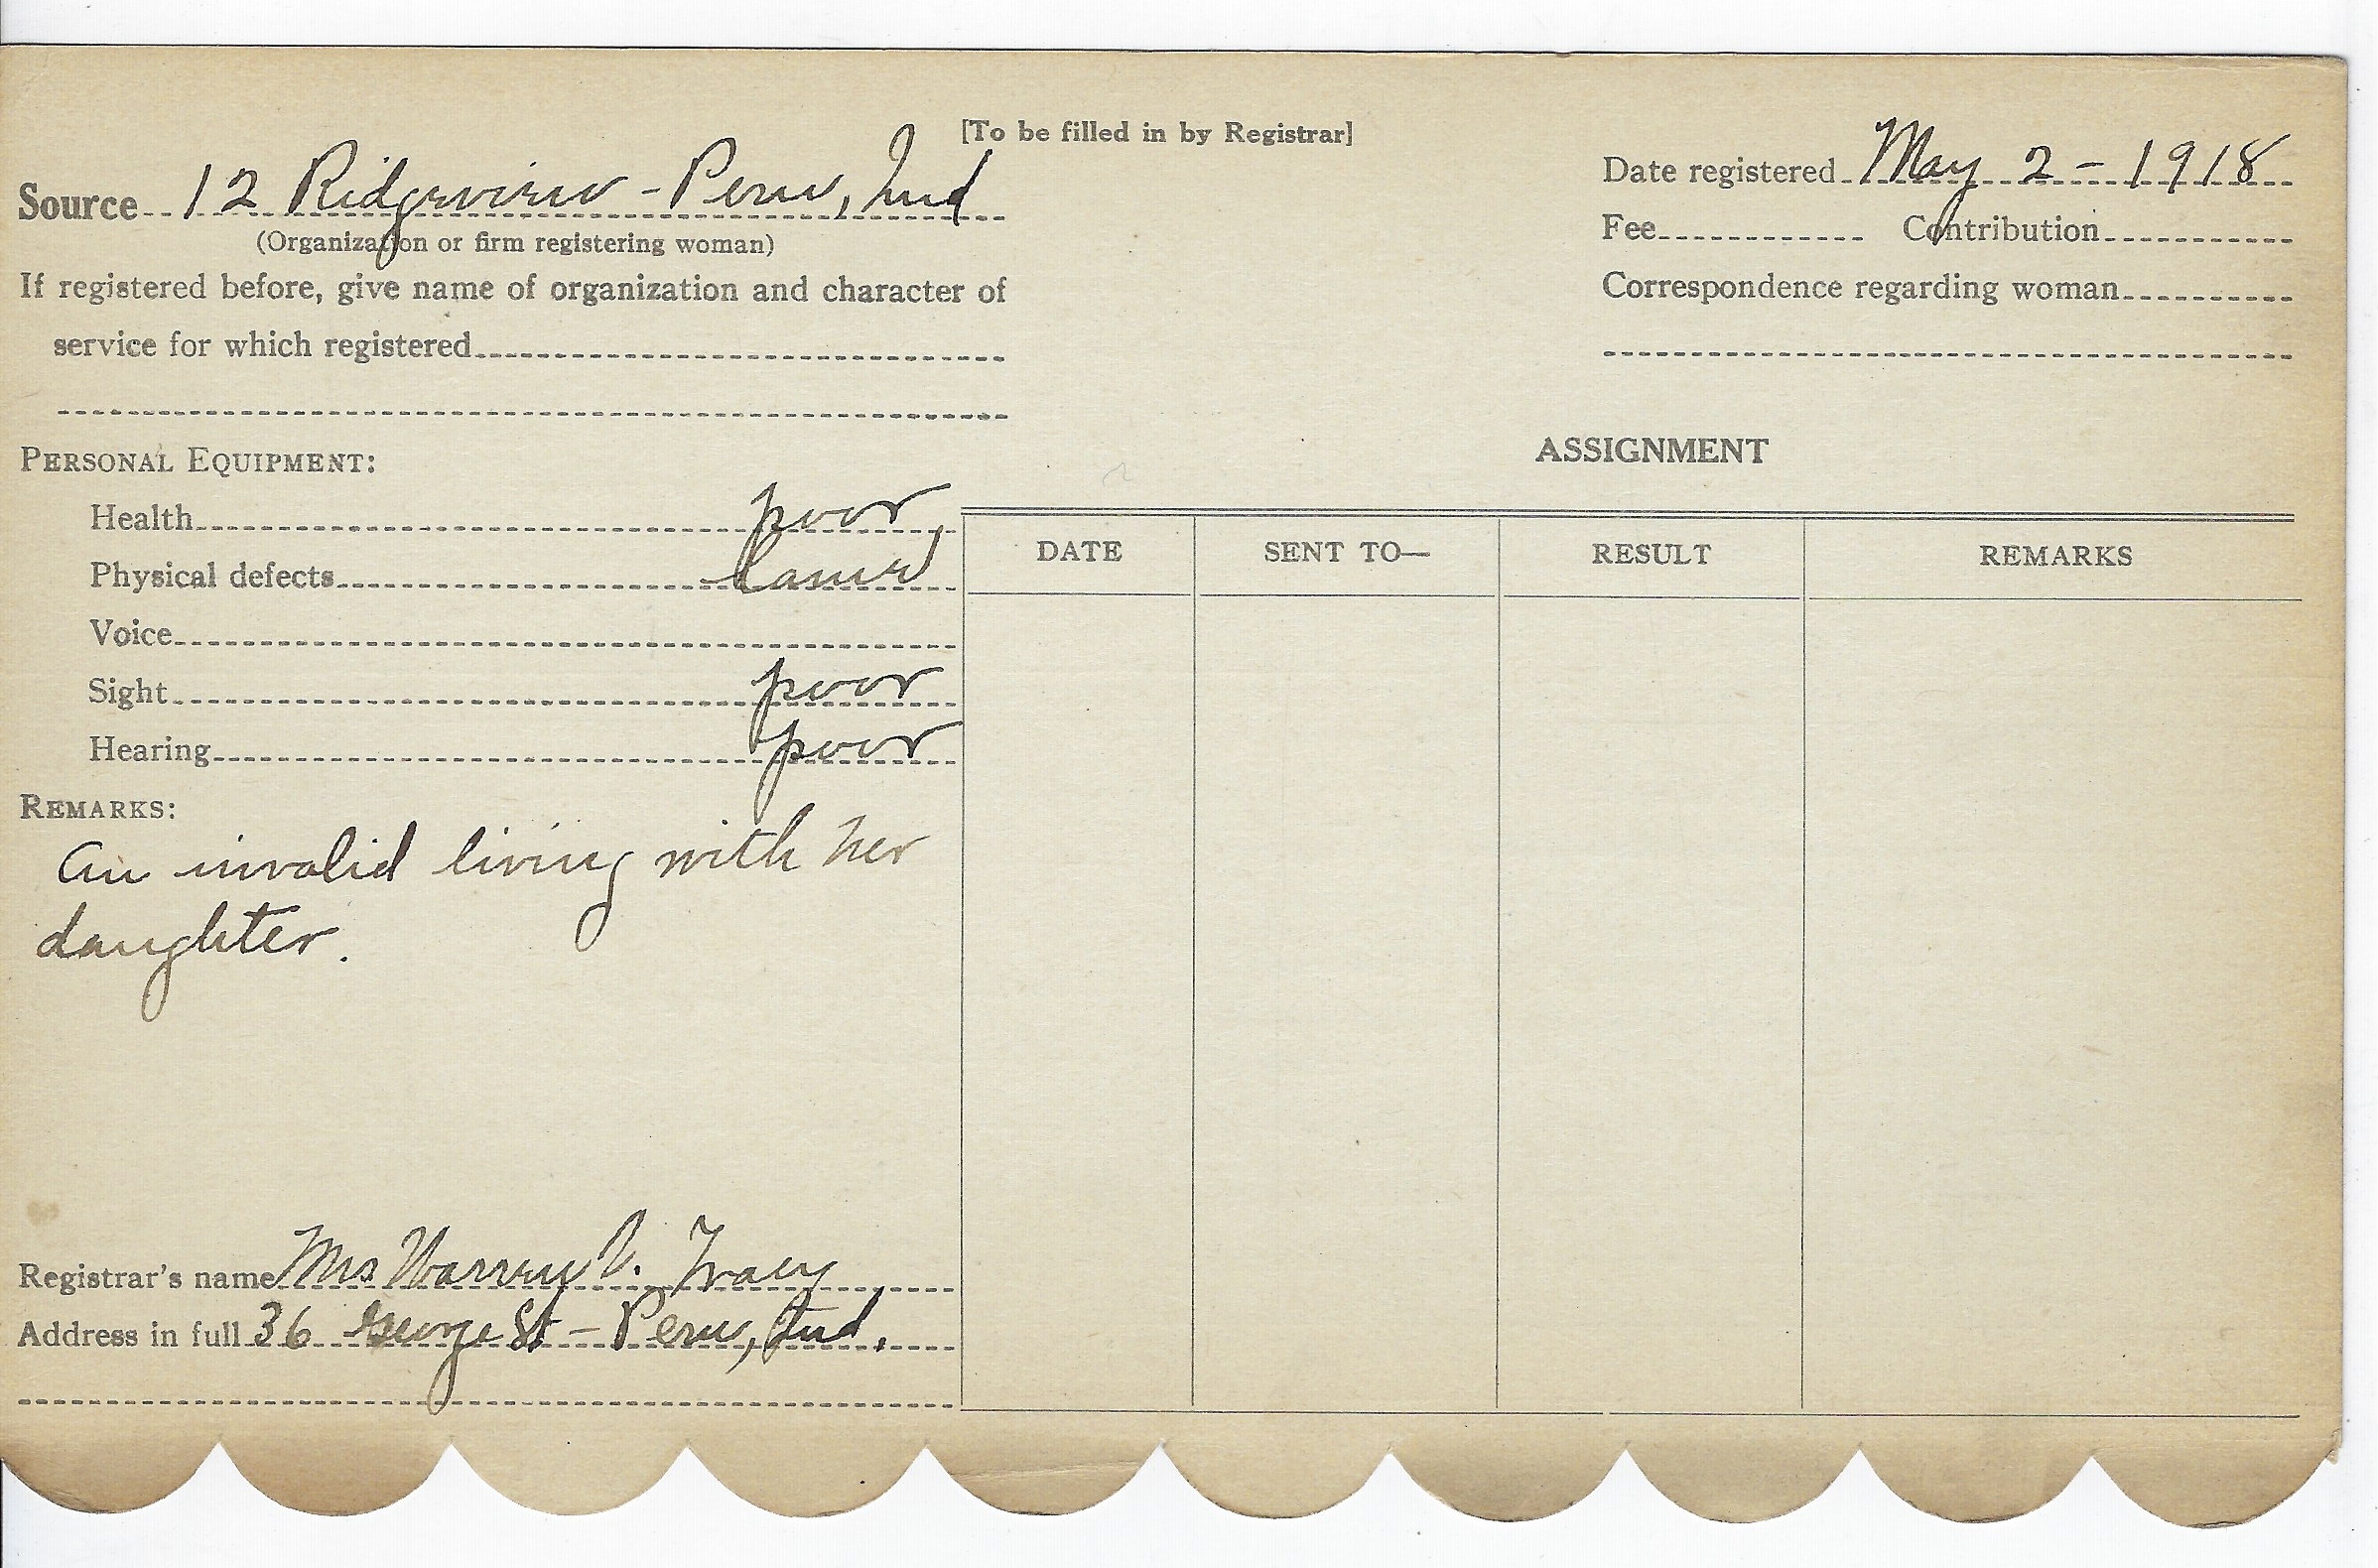 [To be filled in by Registrar]
Source 12 Ridgeview - Peru, Ind
(Organization or firm registering woman)
If registered before, give name of organization and character of
service for which registered
Date registered May 2 - 1918
Fee Contribution
Correspondence regarding woman
PERSONAL EQUIPMENT:
Health poor
Physical defects lame
Voice
Sight poor
Hearing poor
REMARKS:
An invalid living with her
daughter.
Registrar's name Mrs Warren V. Tracy
Address in full 36 George St - Peru, Ind.
ASSIGNMENT
DATE SENT TO— RESULT REMARKS